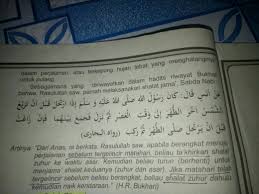 dalam perjalanan, atau terkepung hujan lebat yang menghalanginya
untuk pulang.
Sebagaimana yang diriwayatkan dalam hadits riwayat Bukhari
bahwa, Rasulullah saw, pernah melaksanakan shalat jama'. Sabda Nabi
عَنْ أَنَسٍ قَالَ: كَانَ رَسُوْلُ اللهِ صَلَّى اللهُ عَلَيْهِ وَ سَلَّمَ إِذَا ارْتَحَلَ قَبْلَ أَنْ تَزِيْغَ
الشَّمْسُ أَخَّرَ الظُّهْرَ إِلَى وَقْتِ الْعَصْرِ ثُمَّ نَزَلَ فَجَمَعَ بَيْنَهُمَا، فَإِنْ زَاغَتْ
قَبْلَ أَنْ يَرْتَحِلَ صَلَّى الظُّهْرَ ثُمَّ رَكِبَ (رواه البخارى)
Artinya: "Dari Anas, ia berkata, Rasulullah saw, apabila berangkat menuju
perjalanan sebelum tergelincir matahari, beliau ta'khirkan shalat
zuhur ke waktu ashar. Kemudian beliau turun (berhenti) untuk
menjama' shalat zuhur dan ashar). Jika matahari telah
tergelincir sebelum beliau berangkat, beliau shalat zuhur dahulu
kemudian naik kendaraan." (H.R. Bukhari)